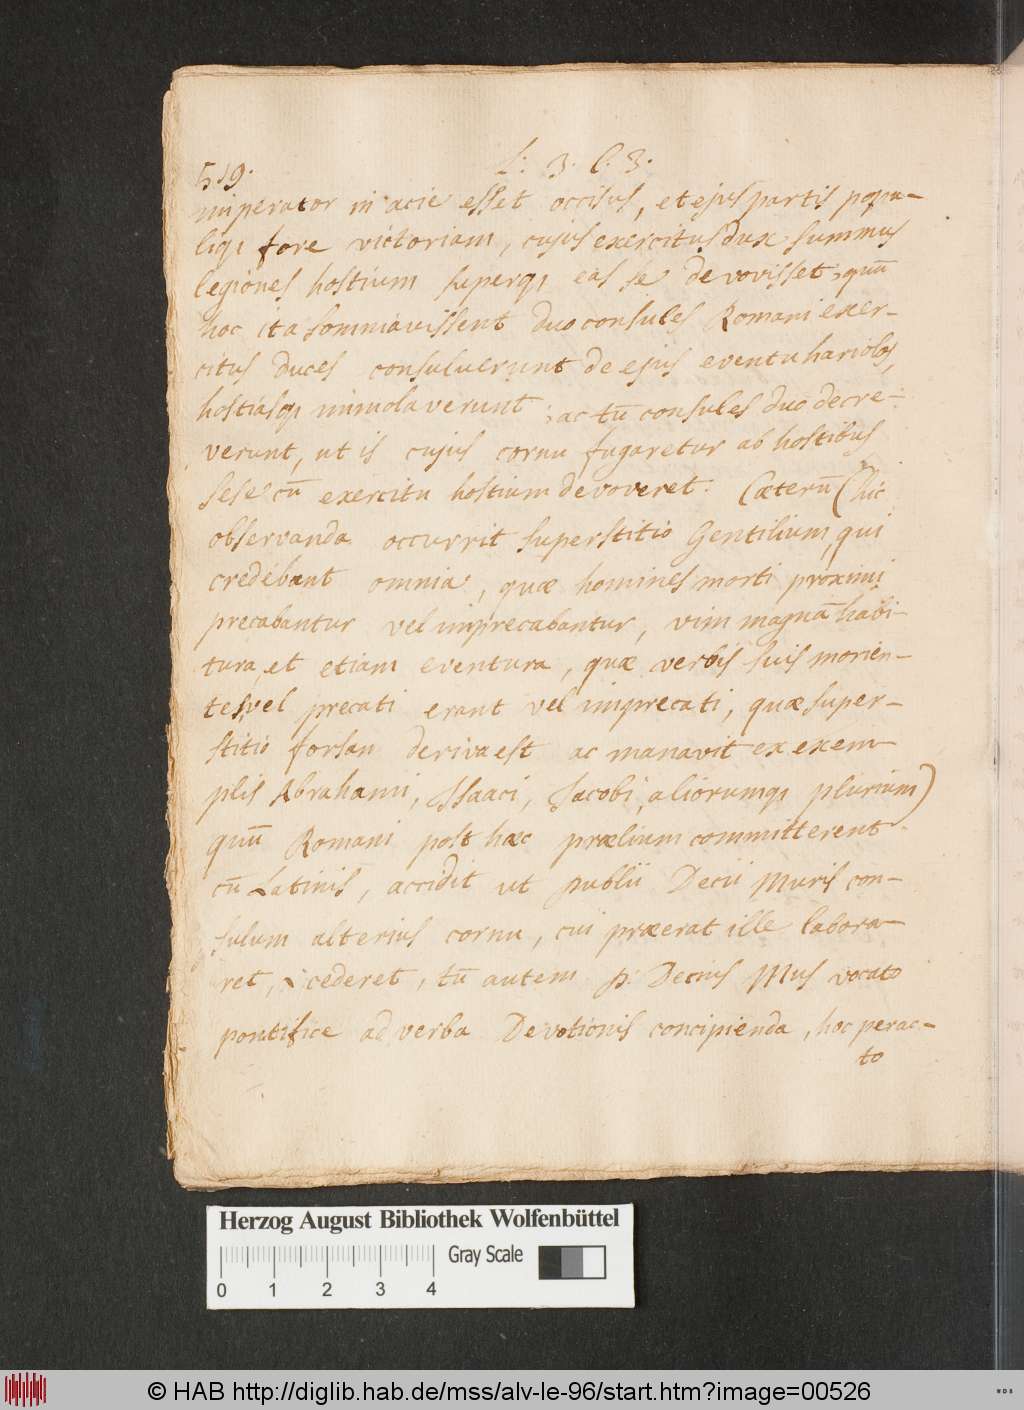 519. L. 3. C. 3.
imperator in acie esset occisus, et ejus partis popu-
liqꝫ fore victoriam, cujus exercitus dux summus
legiones hostium superqꝫ eas se devovisset, quū
hoc ita somniavissent duo consules Romani exer-
citus duces consuluerunt de ejus eventu hariolos,
hostiasqꝫ immolaverunt; ac tū consules duo decre-
verunt, ut is cujus cornu fugaretur ab hostibus
sese cū exercitu hostium devoveret. Cæterū (hic
observanda occurrit superstitio Gentilium, qui
credebant omnia, quæ homines morti proximi
precabantur vel imprecabantur, vim magnā habi-
tura, et etiam eventura, quæ verbis suis morien-
tes, vel precati erant vel imprecati, quæ super-
stitio forsan deriva est ac manavit ex exem-
plis Abrahami, Isaaci, Jacobi, aliorumqꝫ plurium)
quū Romani post hæc prælium committerent
cū Latinis, accidit ut Publii Decii Muris con-
sulum alterius cornu, cui præerat ille labora-
ret, & cederet, tū autem P. Decius Mus vocato
pontifice ad verba Devotionis concipienda, hoc perac-
to
Herzog August Bibliothek Wolfenbüttel
Gray Scale
0 1 2 3 4
© HAB http://diglib.hab.de/mss/alv-le-96/start.htm?image=00526